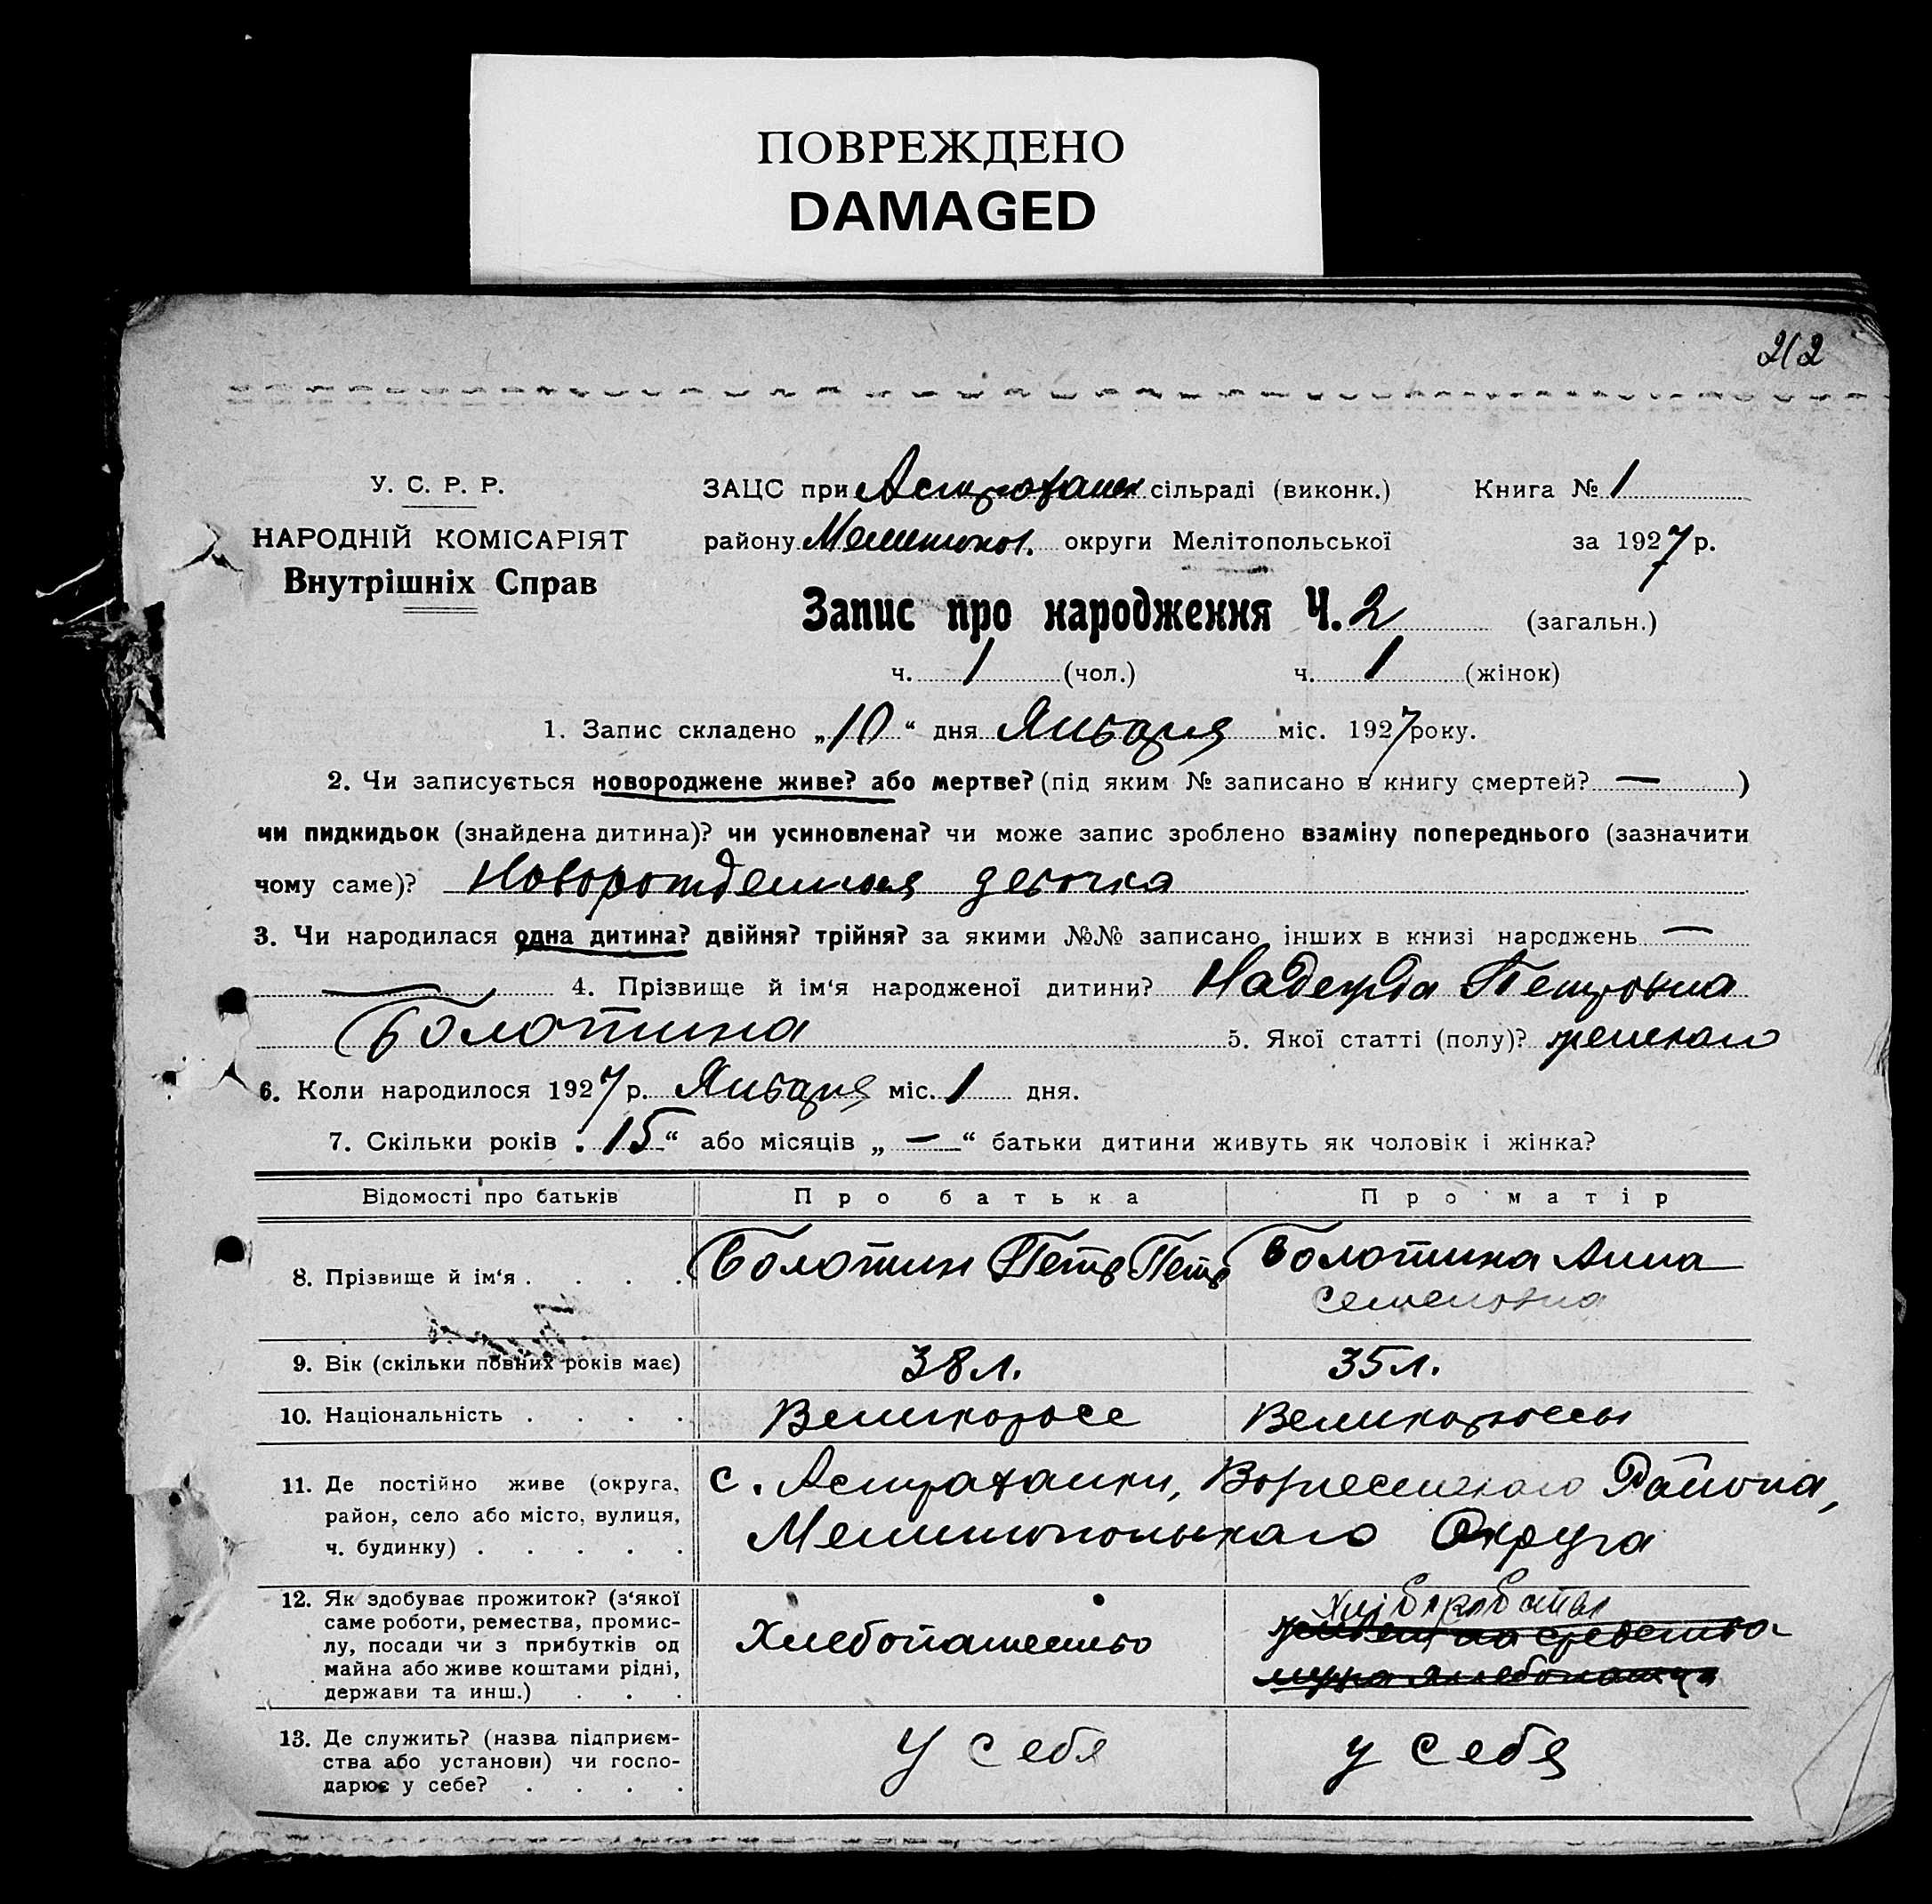 ПОВРЕЖДЕНО
DAMAGED
212
У. С. Р. Р.
НАРОДНІЙ КОМІСАРІЯТ
Внутрішніх Справ
ЗАЦС при Астраханск сільраді (виконк.) Книга № 1
району Мелитопол. округи Мелітопольської за 1927 р.
Запис про народження Ч. 2 (загальн.)
ч. 1 (чол.) ч. 1 (жінок)
1. Запис складено „10“ дня Января міс. 1927 року.
2. Чи записується новороджене живе? або мертве? (під яким № записано в книгу смертей? — )
чи пидкидьок (знайдена дитина)? чи усиновлена? чи може запис зроблено взаміну попереднього (зазначити
чому саме)? Новорожденная девочка
3. Чи народилася одна дитина? двійня? трійня? за якими №№ записано інших в книзі народжень —
— 4. Прізвище й ім‘я народженої дитини? Надежда Петровна
Болотина 5. Якої статті (полу)? женскаго
6. Коли народилося 1927 р. Января міс. 1 дня.
7. Скільки років „15“ або місяців „—“ батьки дитини живуть як чоловік і жінка?
Відомості про батьків Про батька Про матір
8. Прізвище й ім‘я . . . . Болотин Петр Петр Болотина Анна
Семеновна
9. Вік (скільки повних років має) 38 л. 35 л.
10. Національність . . . . Великоросс Великороссы
11. Де постійно живе (округа, район, село або місто, вулиця, ч. будинку) . . . . . с. Астраханки, Вознесенскаго Района,
Мелитопольскаго Округа
12. Як здобуває прожиток? (з‘якої саме роботи, ремества, промислу, посади чи з прибутків од майна або живе коштами рідні, держави та инш.) . . . Хлебопашество
живет на средства
мужа
13. Де служить? (назва підприємства або установи) чи господарює у себе? . . . . У себя У себя